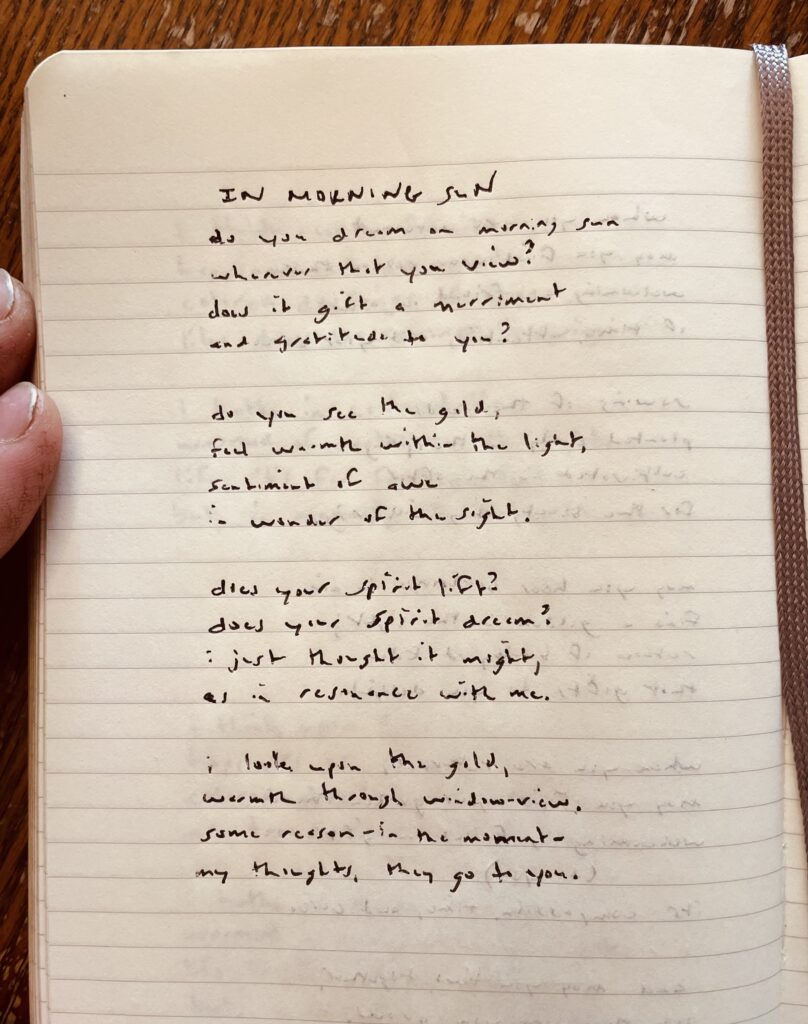 IN MORNING SUN
do you dream on morning sun
wherever that you view?
does it gift a merriment
and gratitude to you?
do you see the gold,
feel warmth within the light,
sentiment of awe
in wonder of the sight.
does your spirit lift?
does your spirit dream?
i just thought it might,
as in resonance with me.
i look upon the gold,
warmth through window-view.
some reason - in the moment -
my thoughts, they go to you.